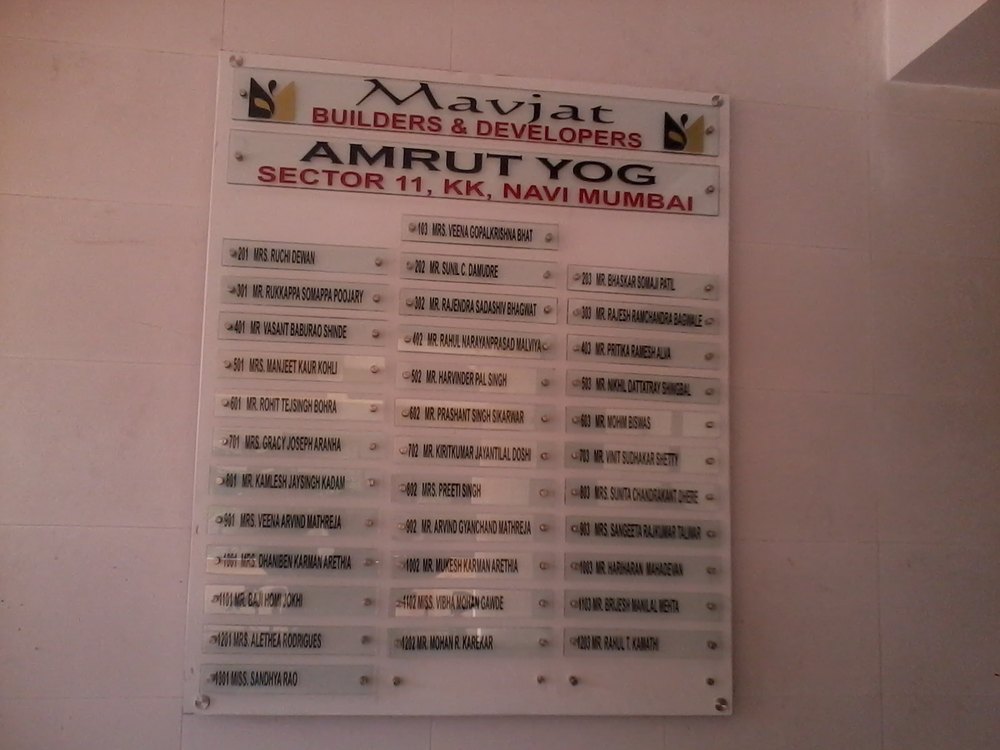 Mavjat
BUILDERS & DEVELOPERS
AMRUT YOG
SECTOR 11, KK, NAVI MUMBAI
103 MRS. VEENA GOPALKRISHNA BHAT
201 MRS. RUCHI DEWAN
202 MR. SUNIL C. DAMUDRE
203 MR. BHASKAR SOMAJI PATIL
301 MR. RUKKAPPA SOMAPPA POOJARY
302 MR. RAJENDRA SADASHIV BHAGWAT
303 MR. RAJESH RAMCHANDRA BAGWALE
401 MR VASANT BABURAO SHINDE
402 MR. RAHUL NARAYANPRASAD MALVIYA
403 MR. PRITIKA RAMESH ALVA
501 MRS. MANJEET KAUR KOHLI
502 MR. HARVINDER PAL SINGH
503 MR. NIKHIL DATTATRAY SHINGBAL
601 MR. ROHIT TEJSINGH BOHRA
602 MR. PRASHANT SINGH SIKARWAR
603 MR. MOHIM BISWAS
701 MRS. GRACY JOSEPH ARANHA
702 MR. KIRITKUMAR JAYANTILAL DOSHI
703 MR. VINIT SUDHAKAR SHETTY
801 MR. KAMLESH JAYSINGH KADAM
802 MRS. PREETI SINGH
803 MRS. SUNITA CHANDRAKANT DHERE
901 MRS. VEENA ARVIND MATHREJA
902 MR. ARVIND GYANCHAND MATHREJA
903 MRS. SANGEETA RAJKUMAR TALWAR
1001 MRS. DHANIBEN KARMAN ARETHIA
1002 MR. MUKESH KARMAN ARETHIA
1003 MR. HARIHARAN MAHADEVAN
1101 MR. BAJI HOMI JOKHI
1102 MISS. VIBHA MOHAN GAWDE
1103 MR. BRIJESH MANILAL MEHTA
1201 MRS. ALETHEA RODRIGUES
1202 MR. MOHAN R. KAREKAR
1203 MR. RAHUL T. KAMATHI
1301 MISS. SANDHYA RAO